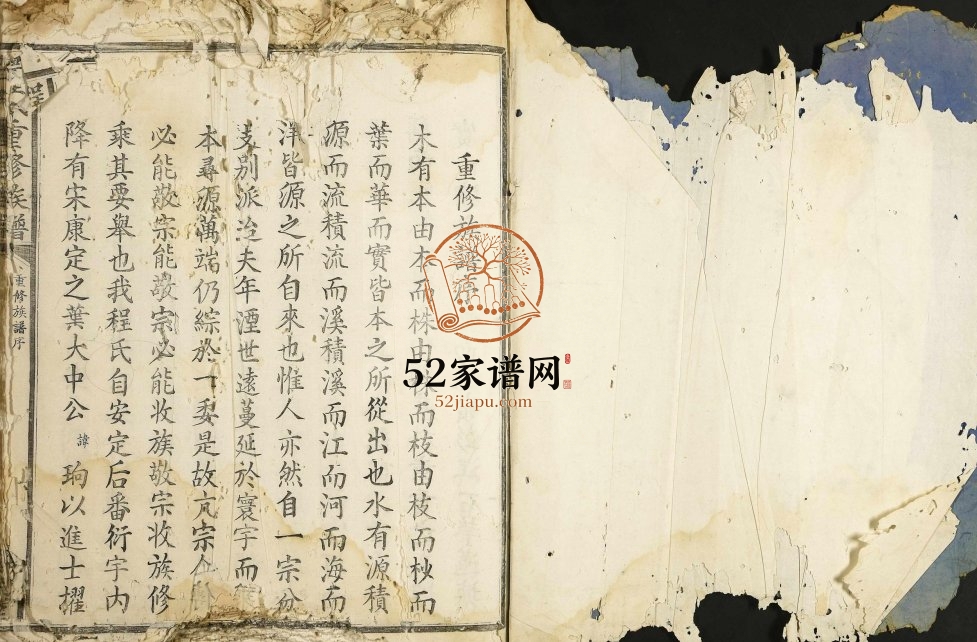 重修族譜序
木有本由本而株由株而枝由枝而杪而
葉而華而實皆本之所從出也水有源積
源而流積流而溪積溪而江而河而海而
洋皆源之所自來也惟人亦然自一宗分
支別派治夫年湮世遠蔓延於寰宇而
本尋源萬端仍綜於一委是故亢宗
必能敬宗能敬宗必能收族敬宗收族修
乘其要舉也我程氏自安定后番衍宇內
降有宋康定之葉大中公諱珦以進士擢
重修族譜
重修族譜序
52家谱网
52jiapu.com